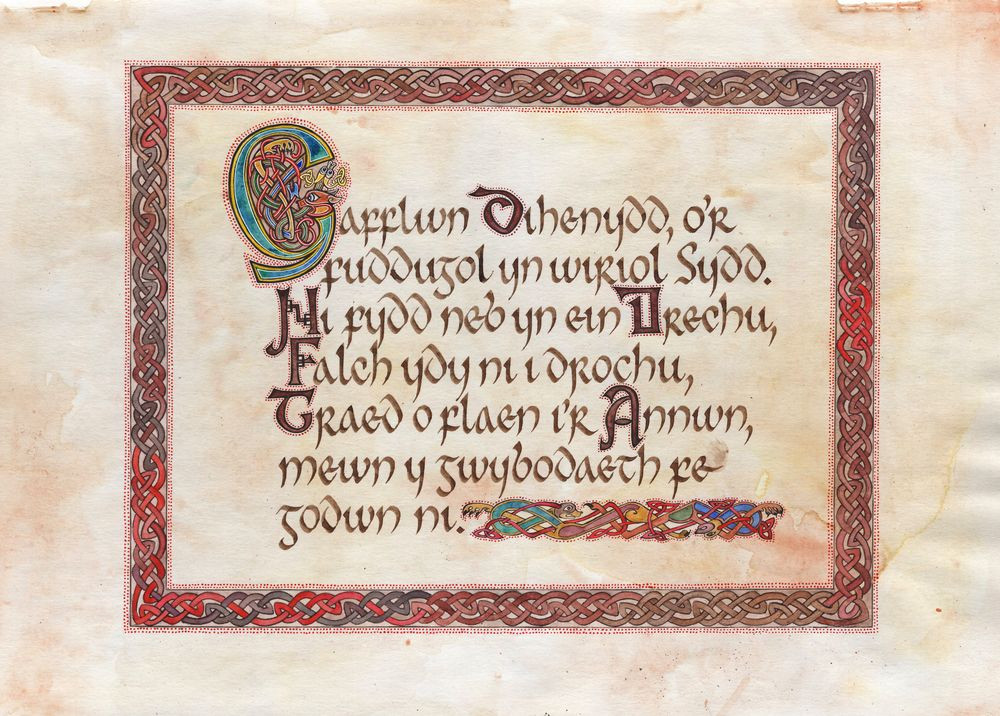 Cafflwn Dihenydd, o'r
fuddugol yn wiriol Sydd.
Ni fydd neb yn ein Drechu,
Falch ydy ni i drochu,
Traed o flaen i'r Annwn,
mewn y gwybodaeth fe
godwn ni.